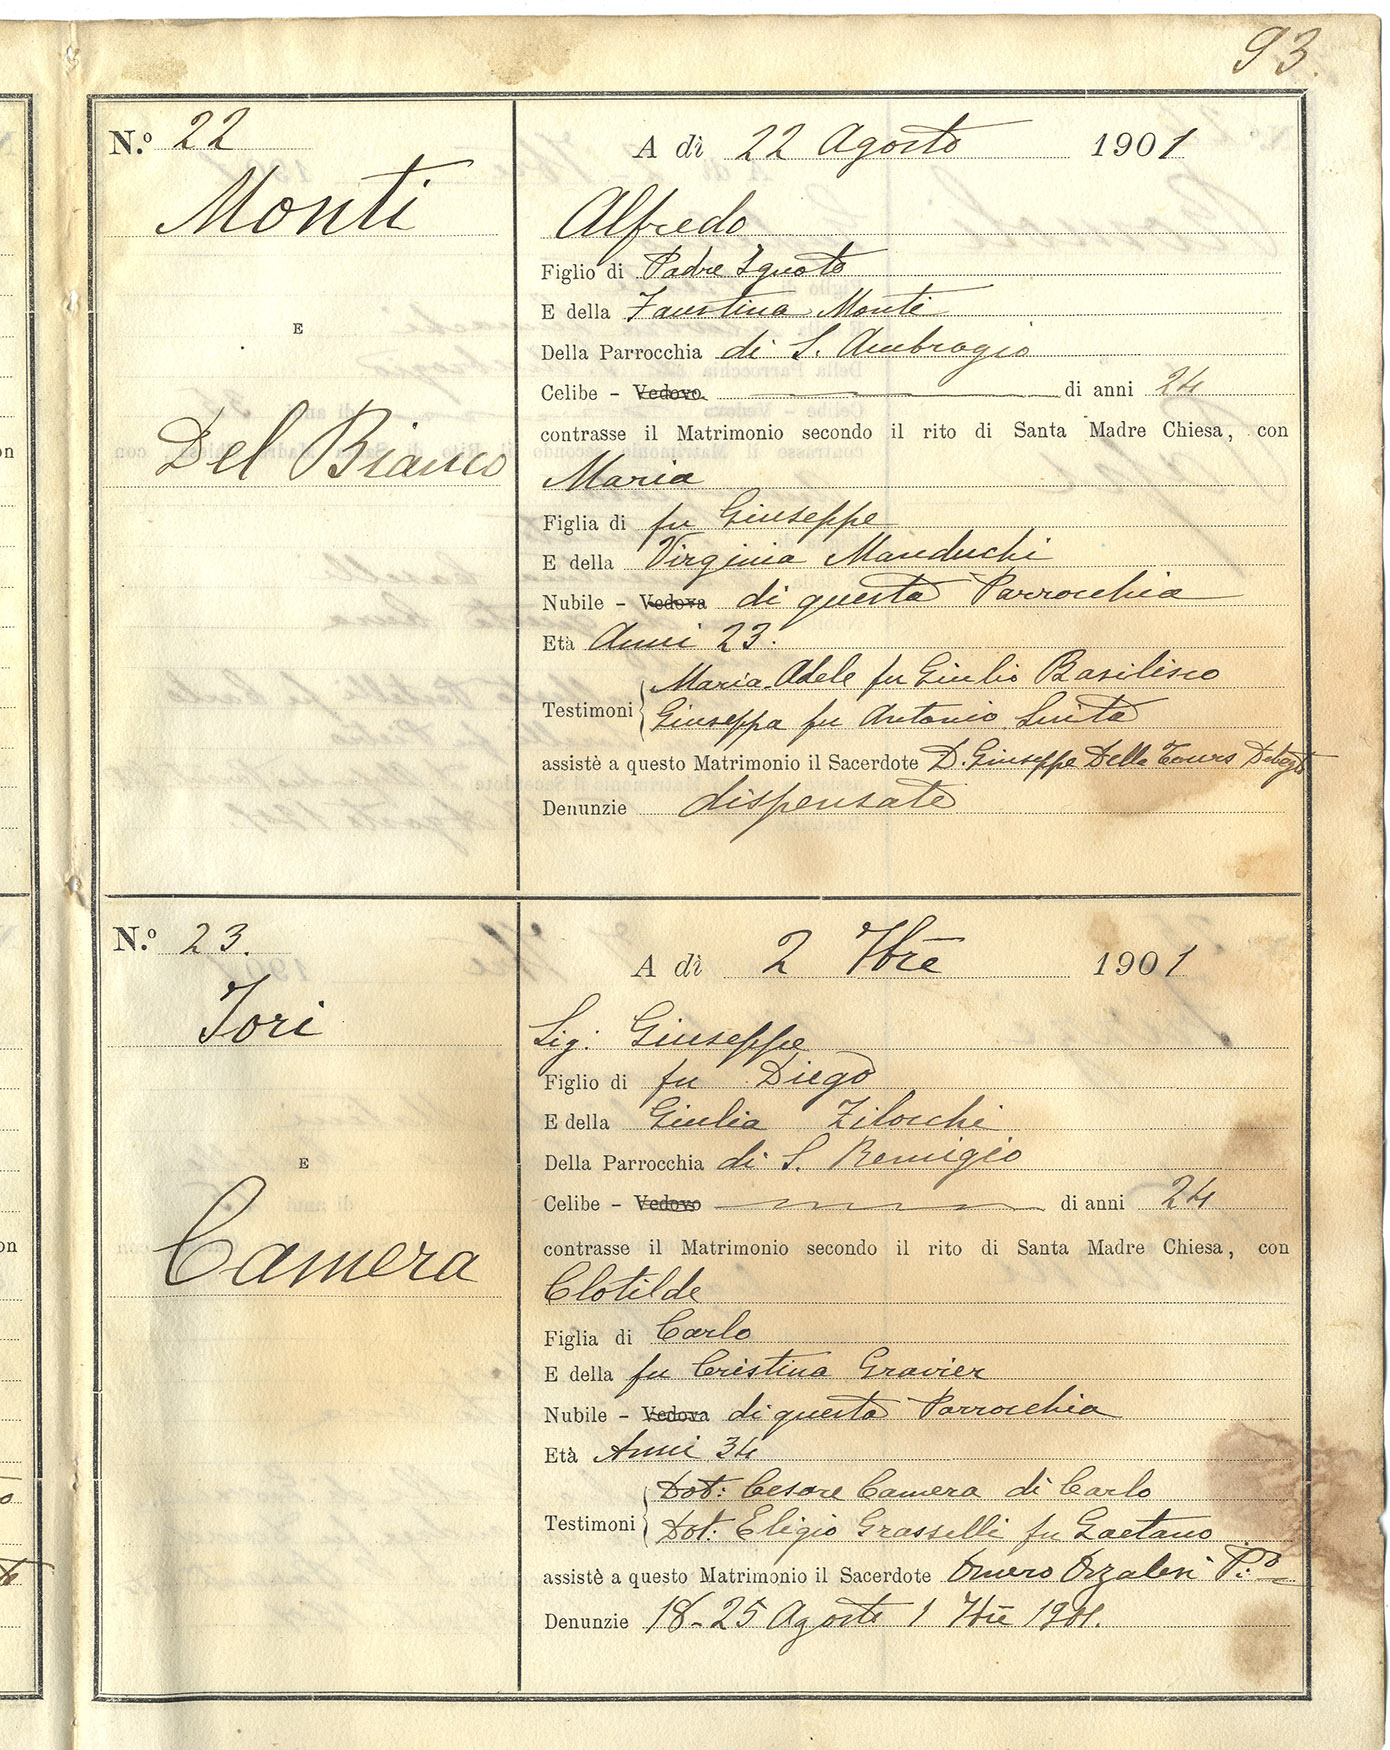 93.
N.º 22
Monti
E
Del Bianco
A dì 22 Agosto 1901
Alfredo
Figlio di Padre Ignoto
E della Faustina Monti
Della Parrocchia di S. Ambrogio
Celibe - Vedovo di anni 24
contrasse il Matrimonio secondo il rito di Santa Madre Chiesa, con
Maria
Figlia di fu Giuseppe
E della Virginia Manduchi
Nubile - Vedova di questa Parrocchia
Età Anni 23.
Maria Adele fu Giulio Basilisco
Testimoni
Giuseppa fu Antonio
assistè a questo Matrimonio il Sacerdote D. Giuseppe Della
Denunzie dispensate
N.º 23.
Tori
E
Camera
A dì 2 7bre 1901
Sig: Giuseppe
Figlio di fu Diego
E della Giulia Zilocchi
Della Parrocchia di S. Remigio
Celibe - Vedovo di anni 24
contrasse il Matrimonio secondo il rito di Santa Madre Chiesa, con
Clotilde
Figlia di Carlo
E della fu Cristina Gravier
Nubile - Vedova di questa Parrocchia
Età Anni 34
Dot: Cesare Camera di Carlo
Testimoni
Dot: Eligio Grasselli fu Gaetano
assistè a questo Matrimonio il Sacerdote Omero Orzalesi P:o
Denunzie 18-25 Agosto 1 7bre 1901.